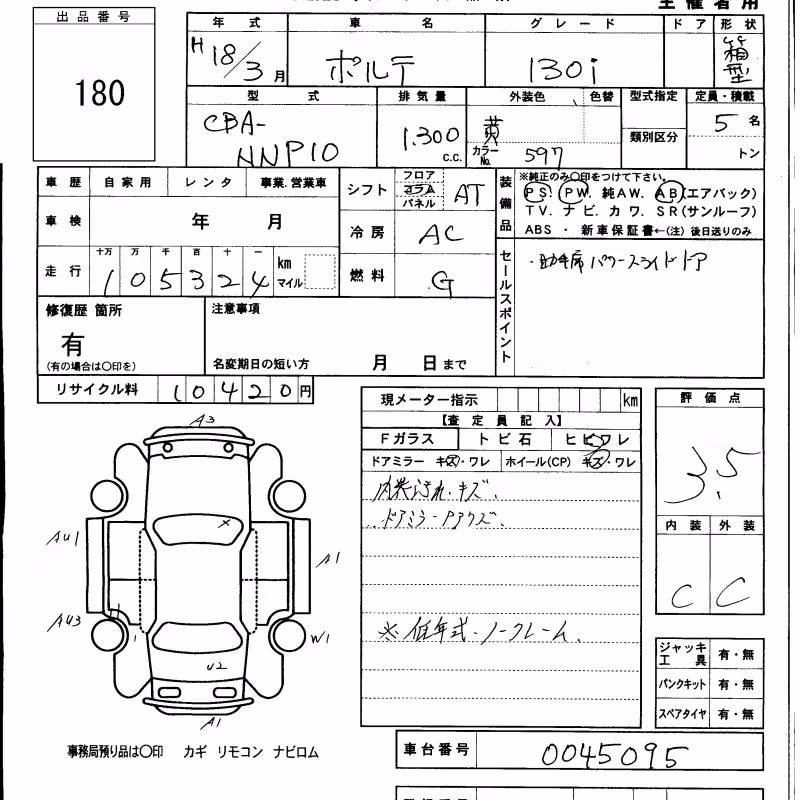 主催者用
出品番号
180
年式 車名 グレード ドア 形状
H18/3月 ポルテ 130i 箱型
型式 排気量 外装色 色替 型式指定 定員・積載
CBA-NNP10 1.300 C.C. 黄 カラーNo. 597 類別区分 5名 トン
車歴 自家用 レンタ 事業.営業車
車検 年 月
十万 万 千 百 十 一
走行 105324 km マイル
シフト フロア コラム パネル AT
冷房 AC
燃料 G
装備品 ※純正のみ○印をつけて下さい。
PS. PW. 純AW. AB(エアバック)
TV. ナビ. カワ. SR(サンルーフ)
ABS ・ 新車保証書←(注) 後日送りのみ
セールスポイント
・助手席パワースライドドア
修復歴 箇所
有
(有の場合は○印を)
注意事項
名変期日の短い方 月 日まで
リサイクル料 10420円
現メーター指示 km
【査定員記入】
Fガラス トビ石 ヒビワレ
ドアミラー キズ・ワレ ホイール(CP) キズ・ワレ
内装汚れ.キズ.
ドアミラー
※低年式.ノークレーム.
評価点
3.5
内装 外装
C C
A3
AU1
A1
AU3
W1
U2
A1
ジャッキ工具 有・無
パンクキット 有・無
スペアタイヤ 有・無
事務局預り品は○印 カギ リモコン ナビロム
車台番号 0045095